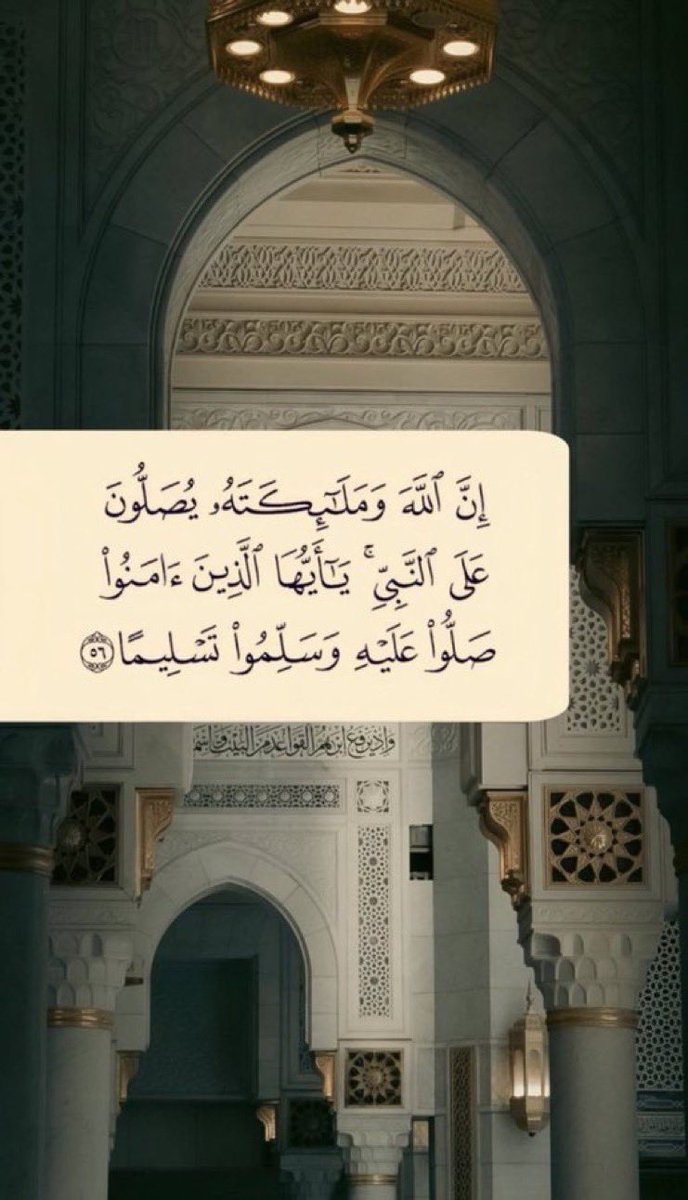 إِنَّ ٱللَّهَ وَمَلَـٰٓئِكَتَهُۥ يُصَلُّونَ
عَلَى ٱلنَّبِىِّ ۚ يَـٰٓأَيُّهَا ٱلَّذِينَ ءَامَنُوا۟
صَلُّوا۟ عَلَيْهِ وَسَلِّمُوا۟ تَسْلِيمًا ٥٦
وإذ يرفع إبرهم القواعد من البيت وإسم